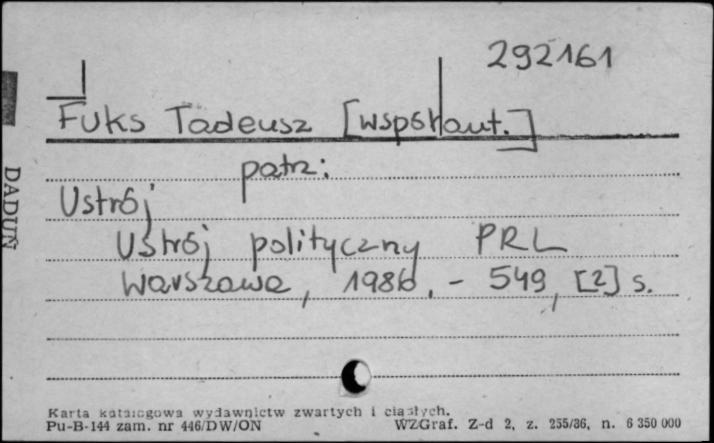 292161
Fuks Tadeusz [współaut.]
patrz:
Ustrój
Ustrój polityczny PRL
Warszawa, 1986. - 549, [2] s.
DADUŃ
Karta katalogowa wydawnictw zwartych i ciągłych.
Pu-B-144 zam. nr 446/DW/ON WZGraf. Z-d 2, z. 255/86, n. 6 350 000